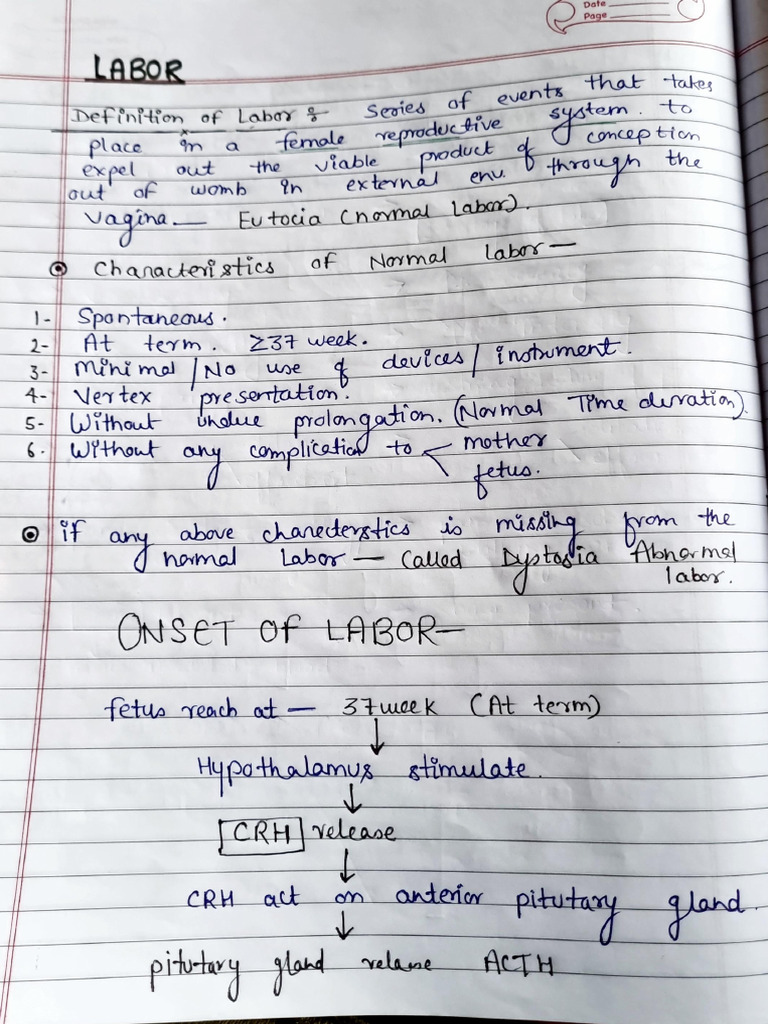 Date
Page
LABOR
Definition of Labor : Series of events that takes
place in a female reproductive system. to
expel out the viable product of conception
out of womb in external env. through the
vagina — Eutocia (normal Labor).
Characteristics of Normal labor —
1- Spontaneous.
2- At term. ≥37 week.
3- Minimal / No use of devices / instrument.
4- Vertex presentation.
5- Without undue prolongation. (Normal Time duration).
6. Without any complication to < mother
fetus.
if any above charecterstics is missing from the
normal Labor — Called Dystosia Abnormal
labor.
ONSET OF LABOR —
fetus reach at — 37 week (At term)
↓
Hypothalamus stimulate.
↓
CRH release
↓
CRH act on anterior pitutary gland.
↓
pitutary gland release ACTH